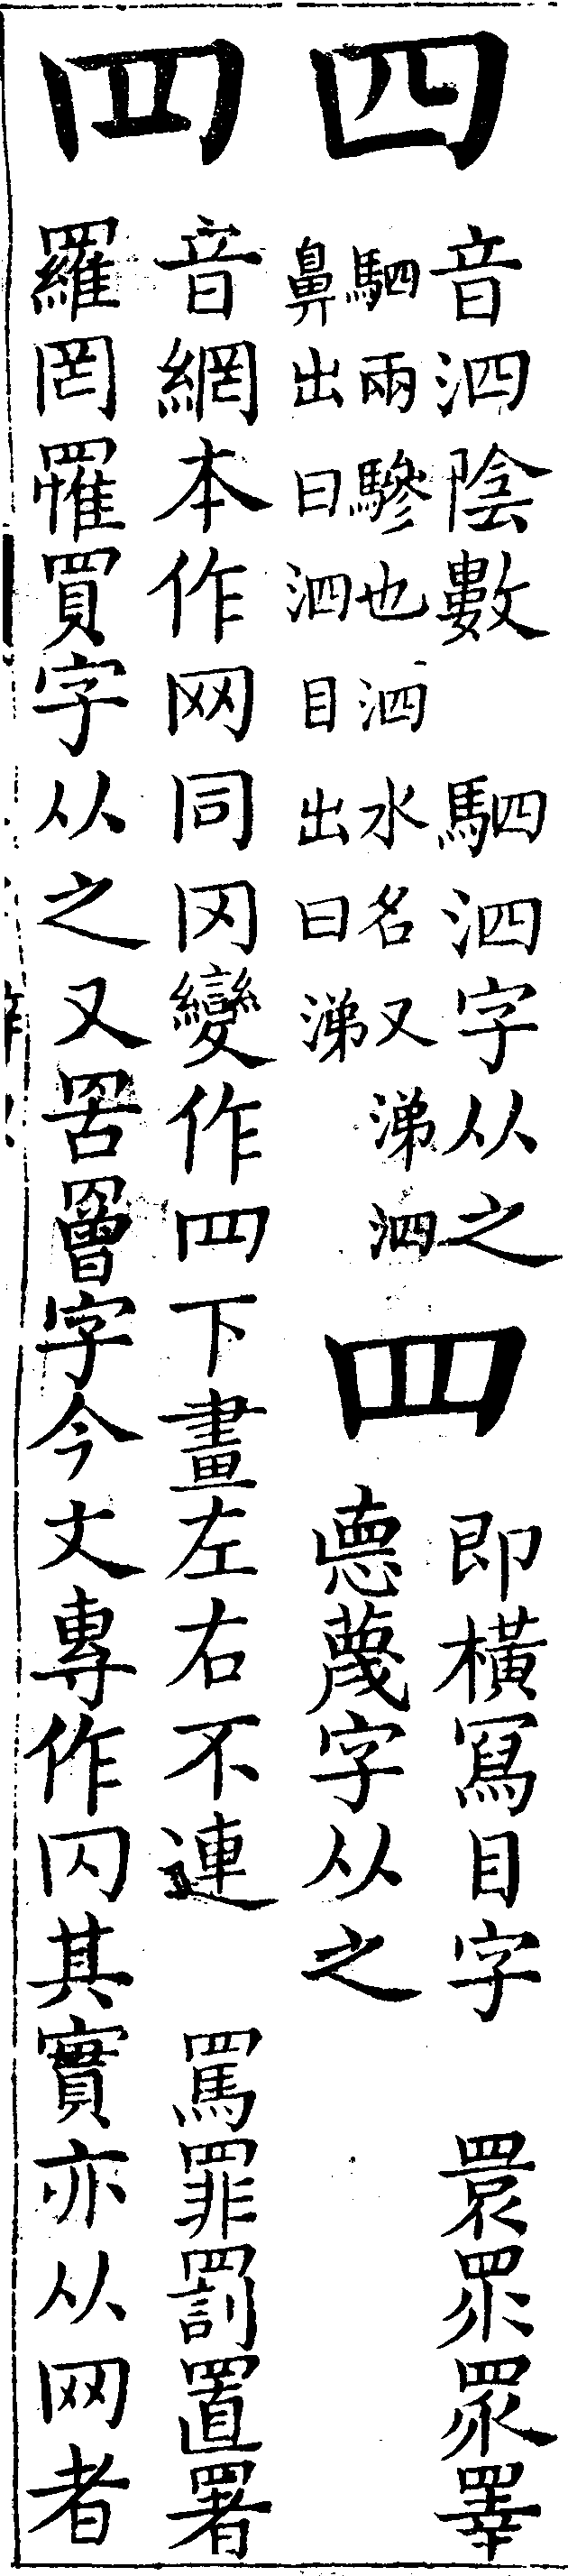 四
音泗陰數 駟泗字从之
駟兩驂也泗水名又涕泗
鼻出曰泗目出曰涕
罒
即橫寫目字 睘眔眾睪
悳蔑字从之
罒
音網本作网同罓變作罒下畫左右不連 罵罪罰置署
羅罔罹買字从之又罟罾字今文專作罓其實亦从网者